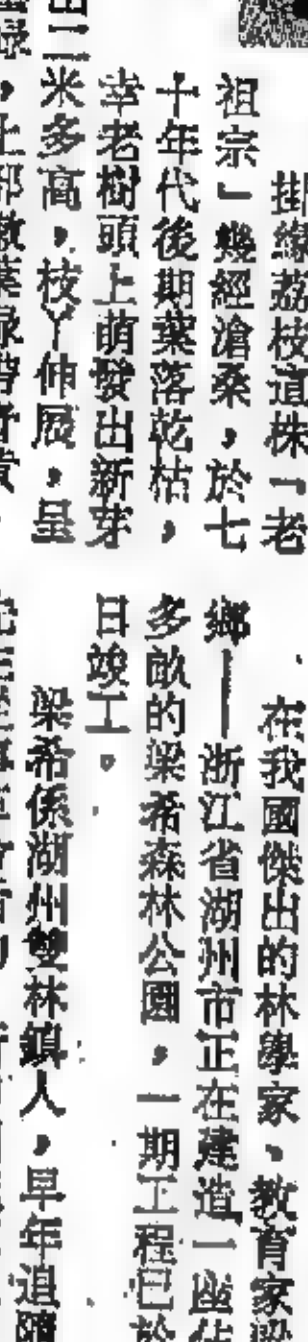 掛緣荔枝這株「老
祖宗」幾經滄桑，於七
十年代後期葉落乾枯，
幸老樹頭上萌發出新芽
二米多高，枝丫伸展，呈
在我國傑出的林學家、教育家梁
鄉——浙江省湖州市正在建造一座佔
多畝的梁希森林公園，一期工程已於
日竣工。
梁希係湖州雙林鎮人，早年追隨